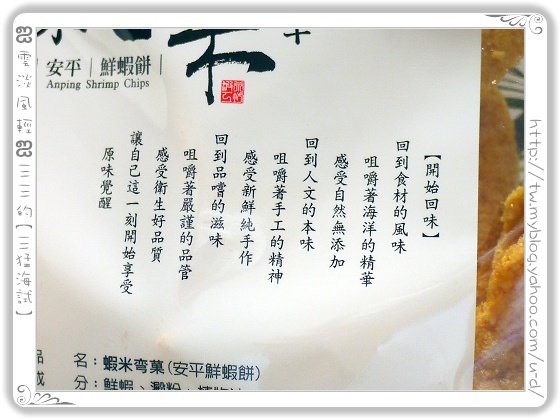 安平｜鮮蝦餅｜
Anping Shrimp Chips
【開始回味】
回到食材的風味
咀嚼著海洋的精華
感受自然無添加
回到人文的本味
咀嚼著手工的精神
感受新鮮純手作
回到品嚐的滋味
咀嚼著嚴謹的品管
感受衛生好品質
讓自己這一刻開始享受
原味覺醒
品　名：蝦米弯菓(安平鮮蝦餅)
成　分：鮮蝦、澱粉、
雲淡風輕
三三的【三猛海試】
http://tw.myblog.yahoo.com/u-d/